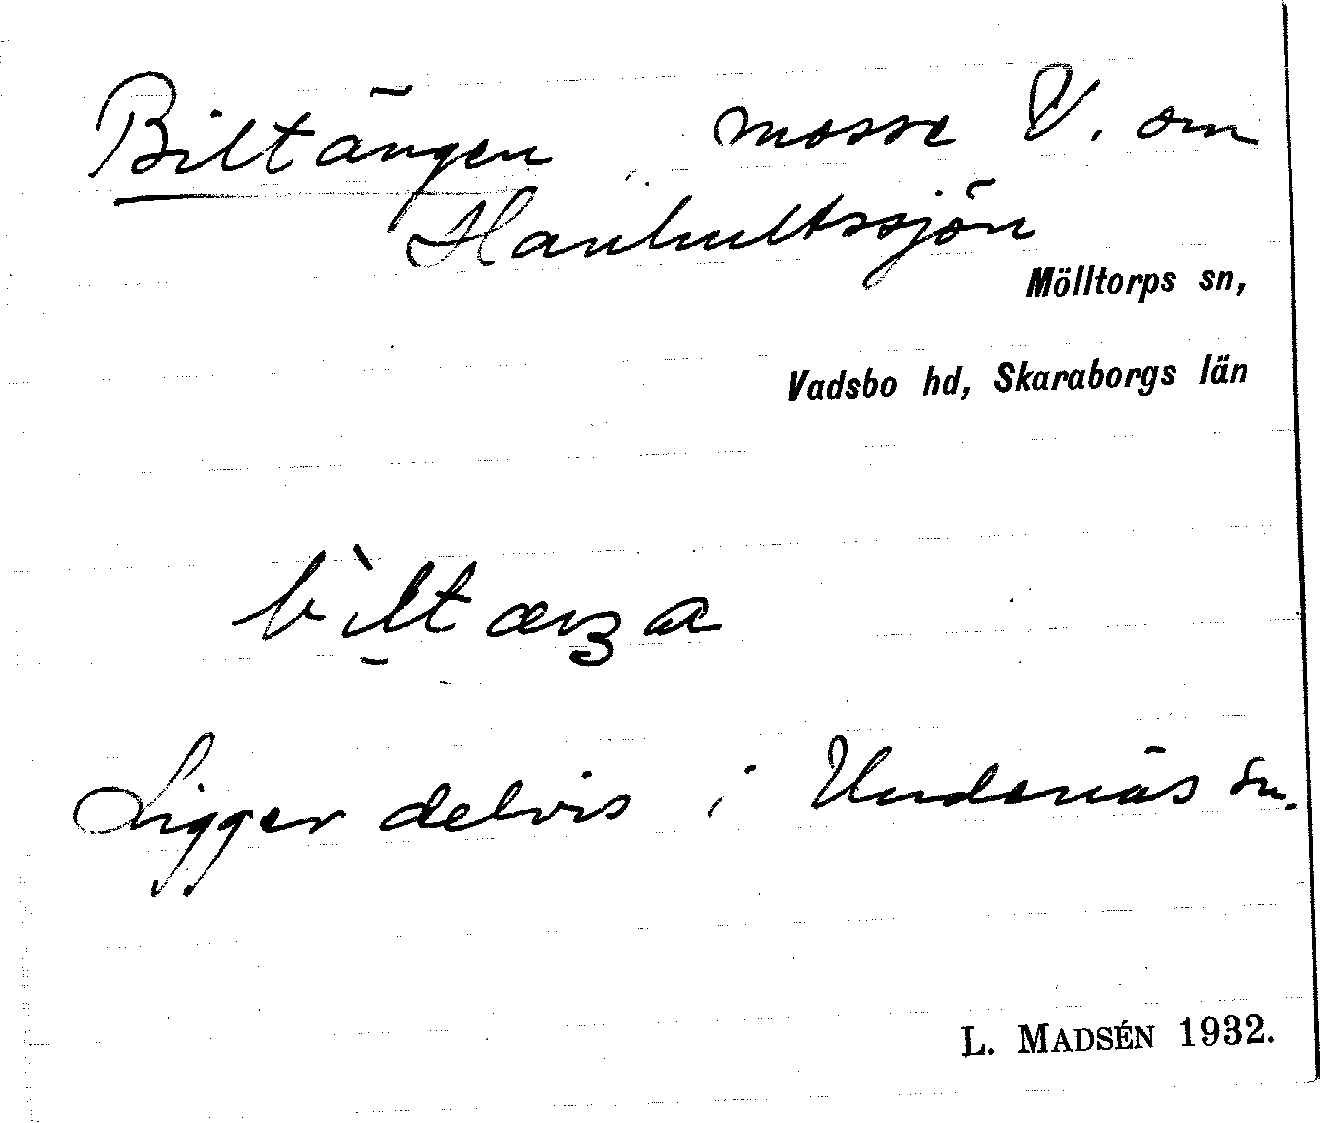 Biltängen, mosse V. om
Hanhultssjön
Mölltorps sn,
Vadsbo hd, Skaraborgs län
Ligger delvis i Undenäs sn.
L. MADSÉN 1932.